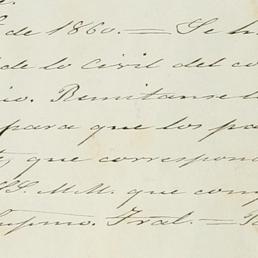 de 1860. — Se h
de lo Civil del co
io. Remitanse l
para que los pa
que correspon
S.S. M.M. que com
Supmo. Tral. —